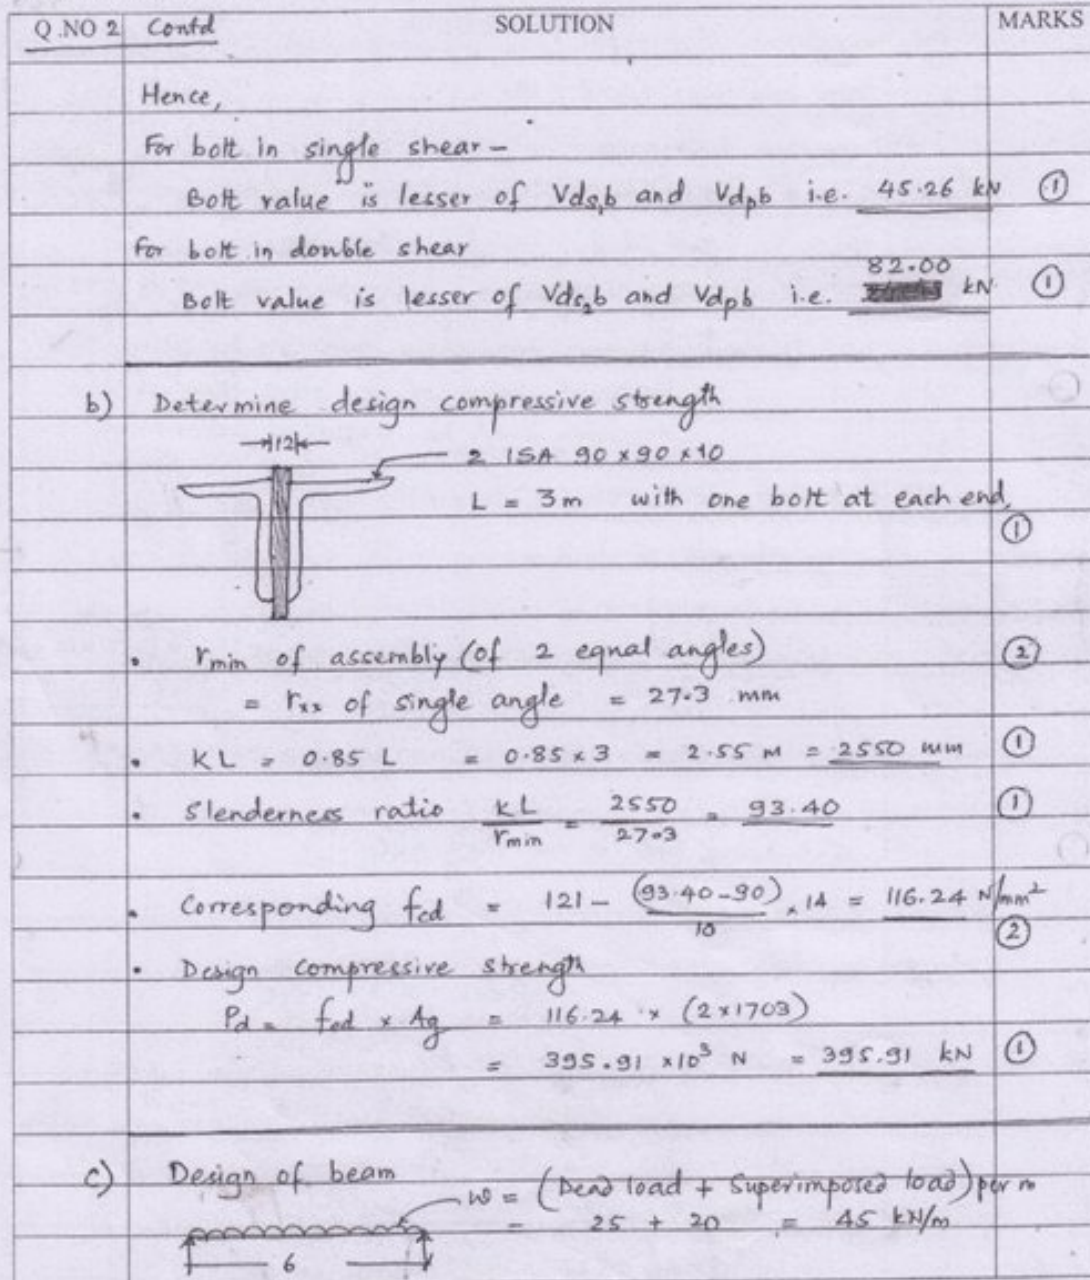 Q.NO 2 Contd SOLUTION MARKS
Hence,
For bolt in single shear –
Bolt value is lesser of Vds₁b and Vdpb i.e. 45.26 kN ①
For bolt in double shear
82.00
Bolt value is lesser of Vds₂b and Vdpb i.e. kN ①
b) Determine design compressive strength
12
2 ISA 90 x 90 x 10
L = 3m with one bolt at each end.
①
• rmin of assembly (of 2 equal angles) ②
= rxx of single angle = 27.3 mm
• KL = 0.85 L = 0.85 x 3 = 2.55 M = 2550 mm ①
• Slenderness ratio KL/rmin = 2550/27.3 = 93.40 ①
• Corresponding fcd = 121 – (93.40-90)/10 x 14 = 116.24 N/mm²
②
• Design compressive strength
Pd = fcd x Ag = 116.24 x (2x1703)
= 395.91 x10³ N = 395.91 kN ①
c) Design of beam
w = (Dead load + Superimposed load) per m
= 25 + 20 = 45 kN/m
6